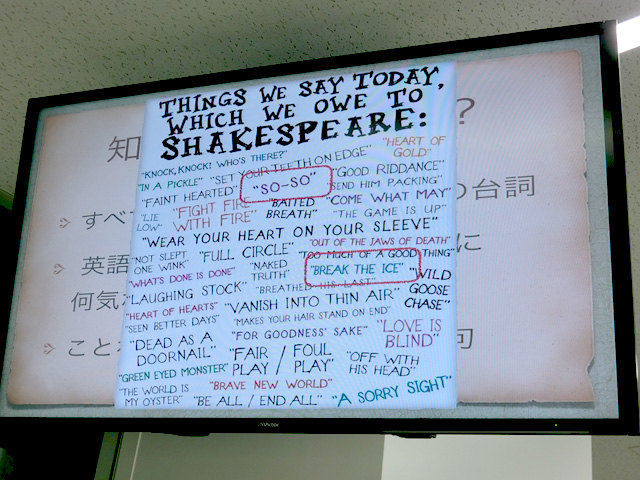 THINGS WE SAY TODAY,
WHICH WE OWE TO
SHAKESPEARE:
知 ?
"KNOCK, KNOCK! WHO'S THERE?" "HEART OF GOLD"
"IN A PICKLE" "SET YOUR TEETH ON EDGE"
"FAINT HEARTED" "SO-SO" "GOOD RIDDANCE"
"SEND HIM PACKING"
"LIE LOW" "FIGHT FIRE WITH FIRE" "BAITED BREATH" "COME WHAT MAY"
"THE GAME IS UP"
の台詞
すべ
"WEAR YOUR HEART ON YOUR SLEEVE"
"NOT SLEPT ONE WINK" "FULL CIRCLE" "OUT OF THE JAWS OF DEATH"
"TOO MUCH OF A GOOD THING"
に
英語
"WHAT'S DONE IS DONE" "NAKED TRUTH" "BREAK THE ICE" "WILD GOOSE CHASE"
"LAUGHING STOCK" "BREATHED HIS LAST"
何気
"HEART OF HEARTS" "VANISH INTO THIN AIR"
"SEEN BETTER DAYS" "MAKES YOUR HAIR STAND ON END"
"DEAD AS A DOORNAIL" "FOR GOODNESS' SAKE" "LOVE IS BLIND"
こと
"FAIR PLAY / FOUL PLAY" "OFF WITH HIS HEAD"
"GREEN EYED MONSTER" "BRAVE NEW WORLD"
"THE WORLD IS MY OYSTER" "BE ALL / END ALL" "A SORRY SIGHT"